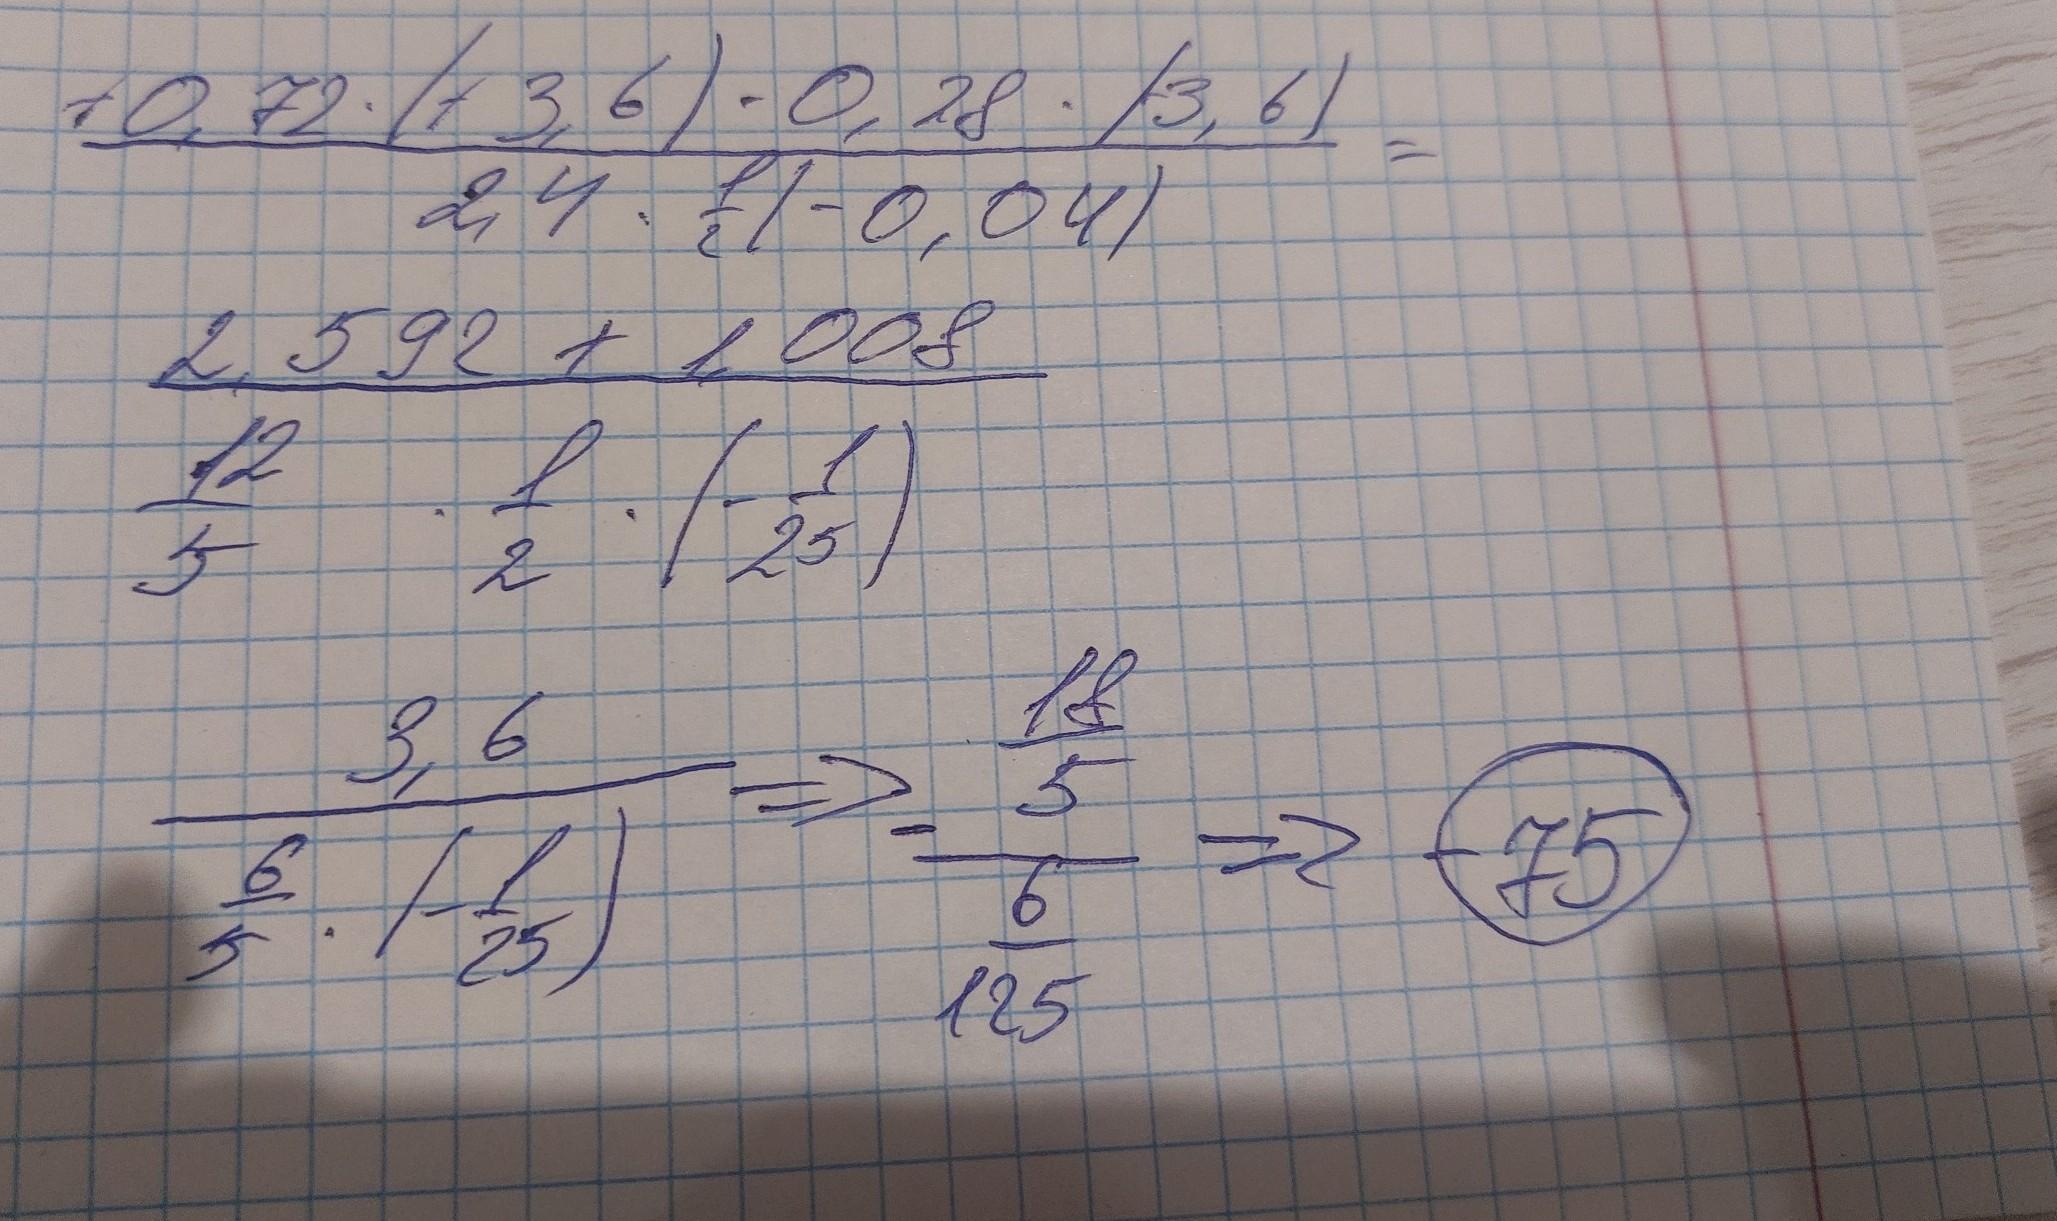 +0,72·(+3,6)-0,28·(-3,6) =
2,4·1/2(-0,04)
2,592+1,008
12/5 · 1/2 · (-1/25)
3,6 / (6/5 · (-1/25)) => - (18/5) / (6/125) => -75